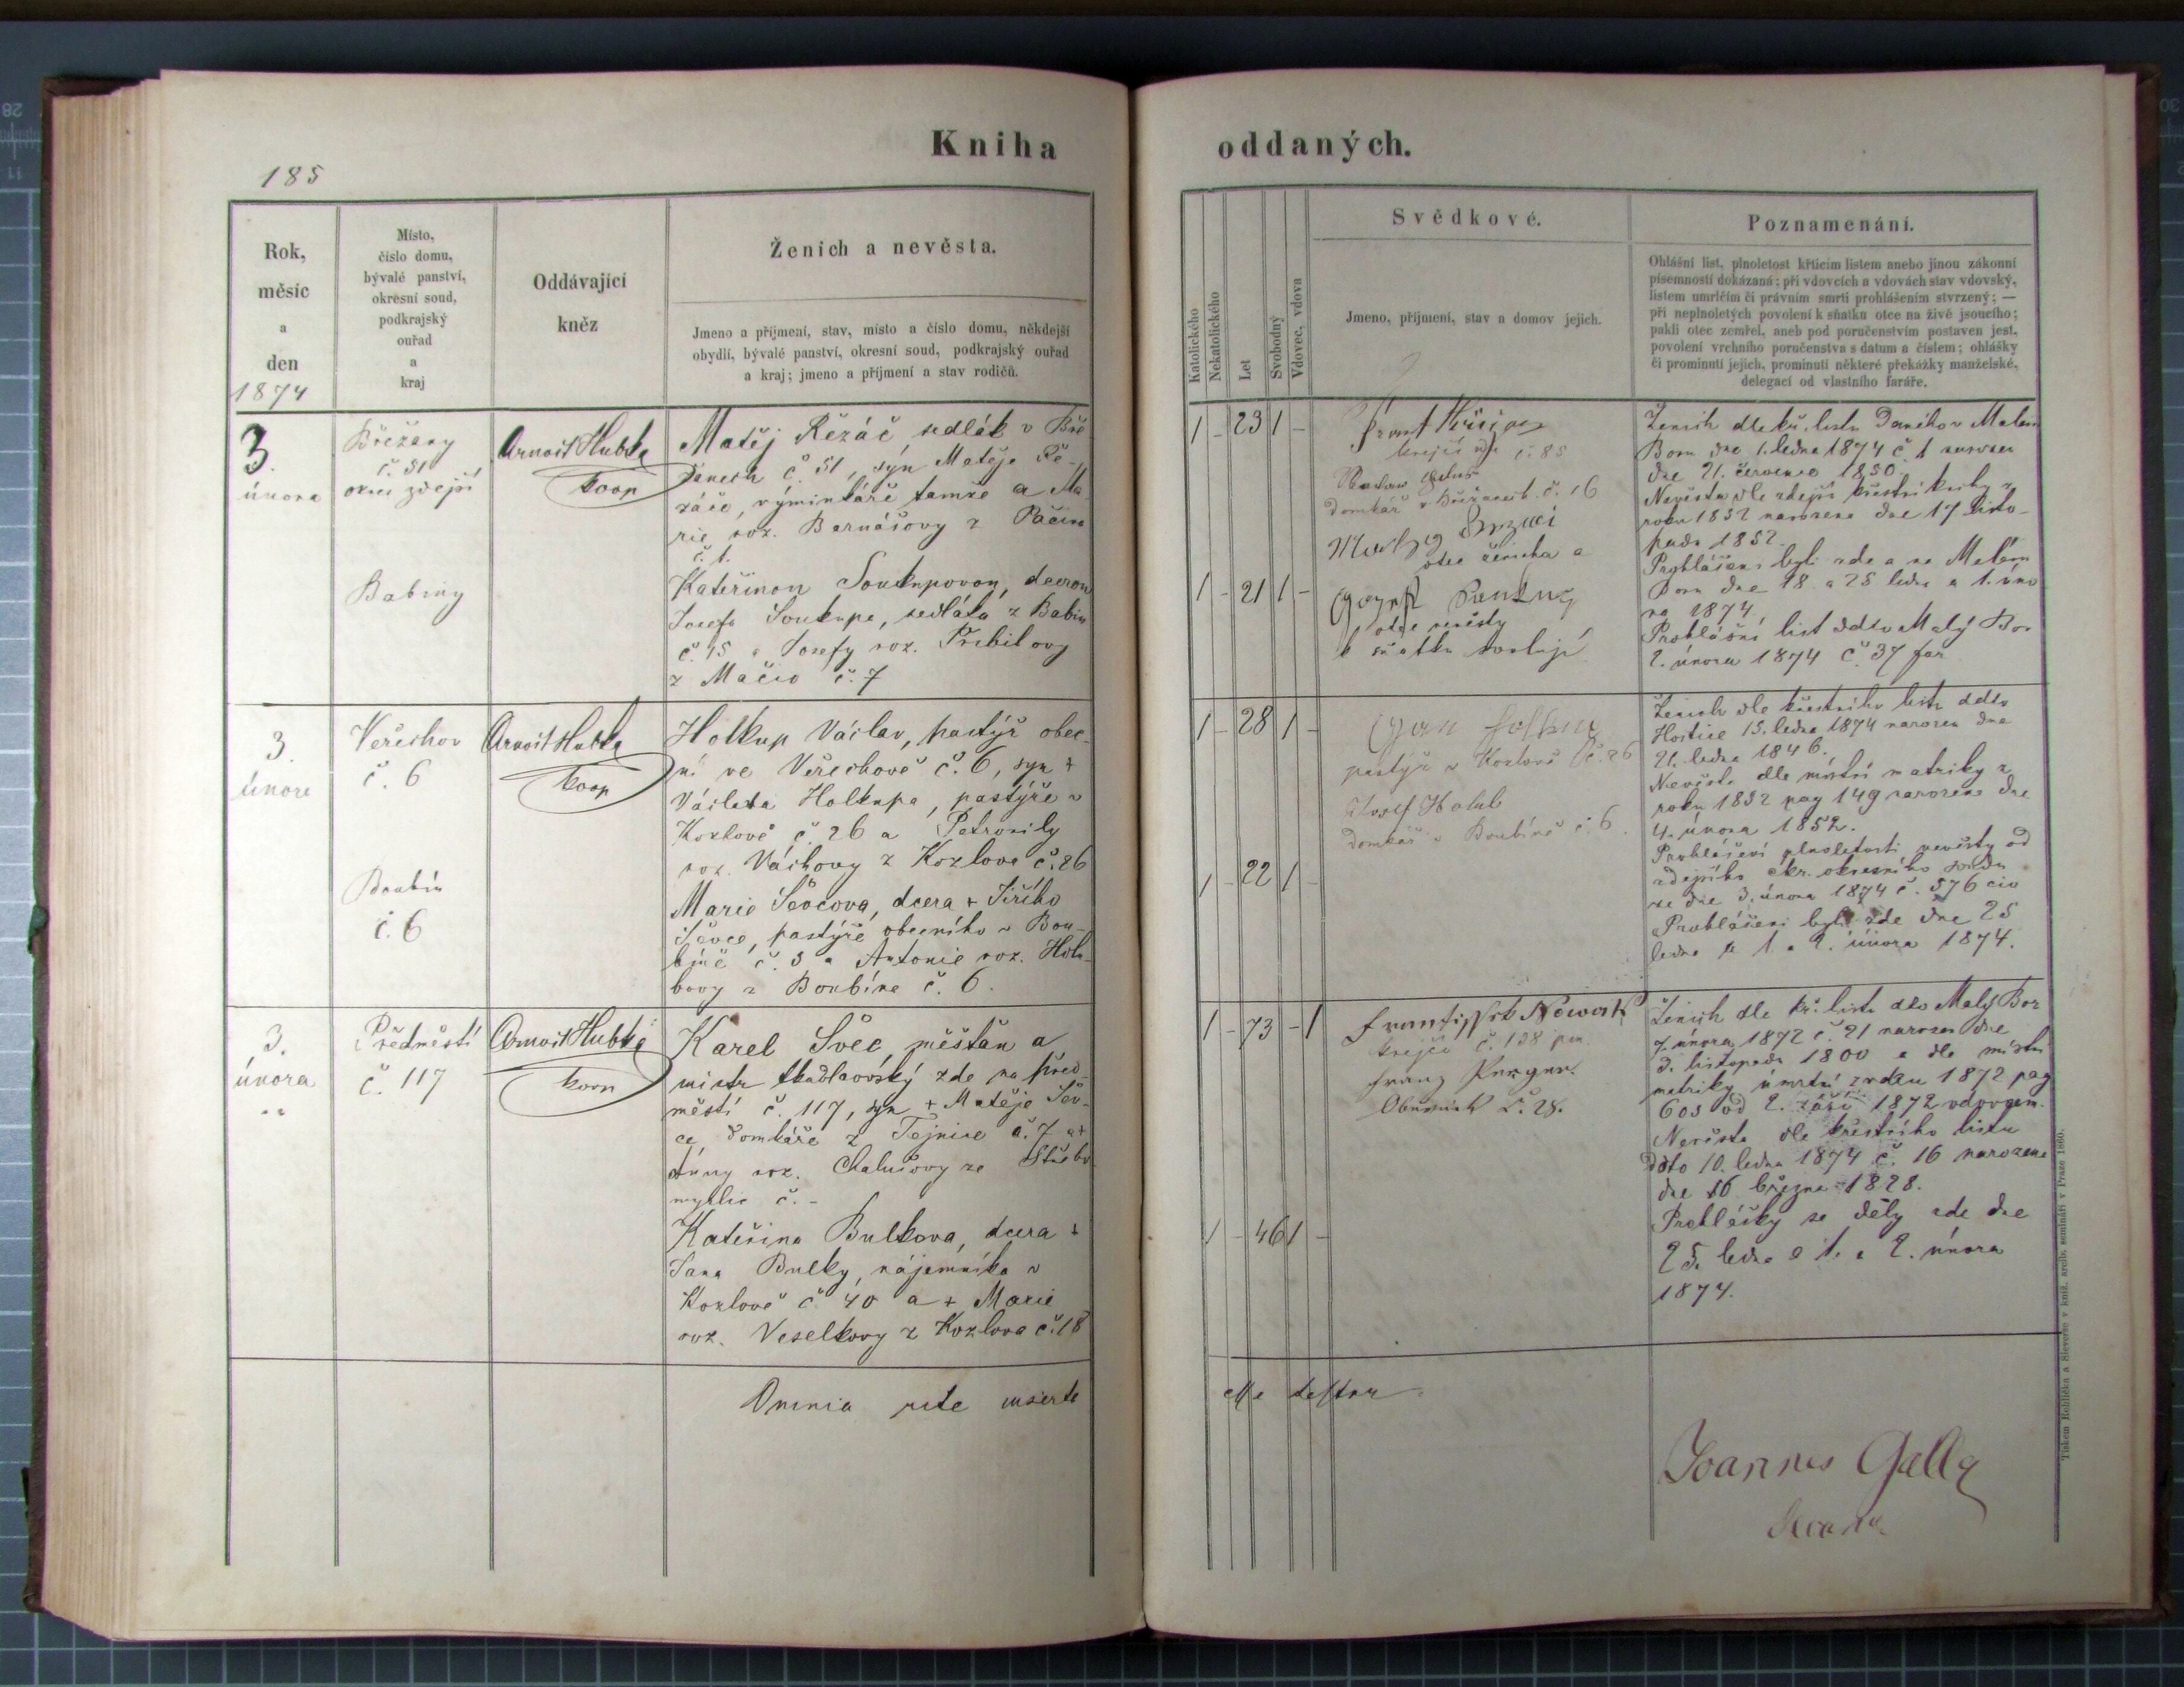 Kniha oddaných.
185
Rok,
měsíc
a
den
1874
Místo,
číslo domu,
bývalé panství,
okresní soud,
podkrajský
ouřad
a
kraj
Oddávající
kněz
Ženich a nevěsta.
Jmeno a příjmení, stav, místo a číslo domu, někdejší
obydlí, bývalé panství, okresní soud, podkrajský ouřad
a kraj; jmeno a příjmení a stav rodičů.
Katolického
Nekatolického
Let
Svobodný
Vdovec, vdova
Svědkové.
Jmeno, příjmení, stav a domov jejich.
Poznamenání.
Ohlášní list, plnoletost křticím listem anebo jinou zákonní
písemností dokázaná; při vdovcích a vdovách stav vdovský,
listem umrlčím či právním smrti prohlášením stvrzený; —
při neplnoletých povolení k sňatku otce na živě jsoucího;
pakli otec zemřel, aneb pod poručenstvím postaven jest,
povolení vrchního poručenstva s datum a číslem; ohlášky
či prominutí jejich, prominutí některé překážky manželské,
delegací od vlastního faráře.
3.
února
Břežany
č. 51
okres zdejší
Babiny
Arnošt Hubka
koop
Matěj Řezáč, sedlák v Bře
žanech č. 51, syn Matěje Ře-
záče, výminkáře tamže a Ma
rie roz. Barnášovy z Pačina
č. 1.
Kateřinou Soukupovou, dcerou
Josefa Soukupa, sedláka z Babin
č. 15 a Josefy roz. Přibilovy
z Mačic č. 7
1 - 23 1 -
1 - 21 1 -
Frant
krejčí č. 85
domkář v Břežanech č. 16
otec ženicha a
otec nevěsty
k sňatku svolují
Ženich dle kř. listu Daného v Malém
Boru dne 1. ledna 1874 č. 1 narozen
dne 21. července 1850.
Nevěsta dle zdejší křestní knihy z
roku 1852 narozena dne 17 listo-
padu 1852.
Prohlášeni byli zde a na Malém
Boru dne 18. a 25 ledna a 1. úno
ra 1874
Prohlášní list ddto Malý Bor
2. února 1874 č. 37 far
3
února
Veřechov
č. 6
Boubín
č. 6
Arnošt Hubka
koop
Holkup Václav, pastýř obec-
ní ve Veřechově č. 6, syn +
Václava Holkupa, pastýře v
Kozlově č. 26 a Petronily
roz. Váchovy z Kozlova č. 26
Marie Ševcova, dcera + Jiřího
Ševce, pastýře obecního v Bou-
bíně č. 3 a Antonie roz. Holu-
bovy z Boubína č. 6.
1 - 28 1 -
1 - 22 1 -
Jan
pastýř v Kozlově č. 26
Josef Holub
domkář v Boubíně č. 6.
Ženich dle křestního listu ddto
Hoštice 15. ledna 1874 narozen dne
21. ledna 1846.
Nevěsta dle místní matriky z
roku 1852 pag 149 narozena dne
4. února 1852.
Prohlášení plnoletosti nevěsty od
zdejšího okresního soudu
ze dne 3. února 1874 č. 576 civ
Prohlášeni byli zde dne 25
ledna a 1. a 2. února 1874.
3.
února
Předměstí
č. 117
Arnošt Hubka
koop
Karel Švec, měšťan a
mistr tkadlcovský zde na před-
městí č. 117, syn + Matěje Šev-
ce, domkáře z Tejnice č. 7 a +
Anny roz. Chalušovy ze Střebo
myslic č. -
Kateřina Bulkova, dcera +
Jana Bulky, nájemníka v
Kozlově č. 40 a + Marie
roz. Veselkovy z Kozlova č. 18
1 - 73 - 1
1 - 46 1 -
Frantissek Nowak
krejčí č. 138
Franz
č. 28.
Ženich dle kř. listu ddo Malý Bor
7. února 1872 č. 21 narozen dne
3. listopadu 1800 a dle místní
matriky úmrtní z roku 1872 pag
603 od 2. září 1872 vdovcem.
Nevěsta dle křestního listu
ddto 10. ledna 1874 č. 16 narozena
dne 16 března 1828.
Prohlášky se děly zde dne
25. ledna a 1. a 2. února
1874.
Omnia rite inserta
esse testor
Joannes Galla
Decanus
Tiskem Rohlíčka a Sieverse v kníž. arcib. semináři v Praze 1860.